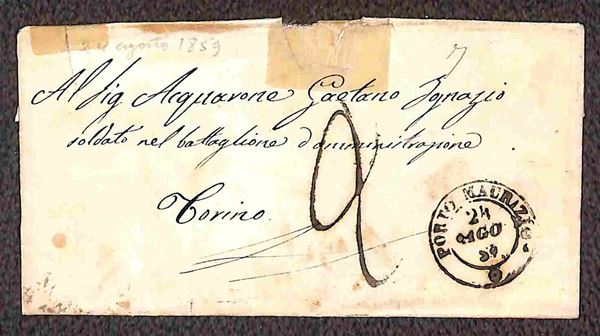 24 agosto 1859
7
Al Sig. Acquarone Gaetano Ignazio
soldato nel battaglione d'amministrazione
Torino
2
PORTO MAURIZIO
24
AGO
59